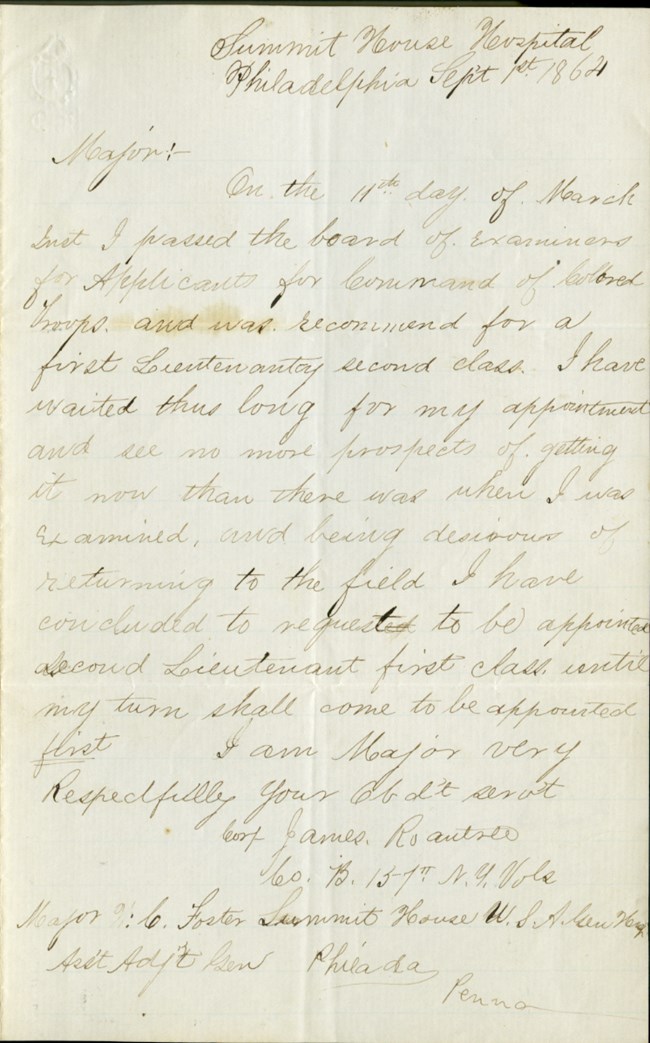 Summit House Hospital
Philadelphia Sept 1st 1864
Major:-
On the 11th day of March
Inst I passed the board of Examiners
for Applicants for Command of Colored
Troops. and was recommend for a
first Lieutenantcy second class. I have
waited thus long for my appointment
and see no more prospects of getting
it now than there was when I was
Examined, and being desirous of
returning to the field I have
concluded to request to be appointed
second Lieutenant first class until
my turn shall come to be appointed
first I am Major very
Respectfully Your Obd't serv't
Corp James. Roantree
Co. B. 157th N.Y. Vols
Major C. Foster Summit House U.S.A. Gen Hosp
Ass't Adj't Gen Philada
Penna